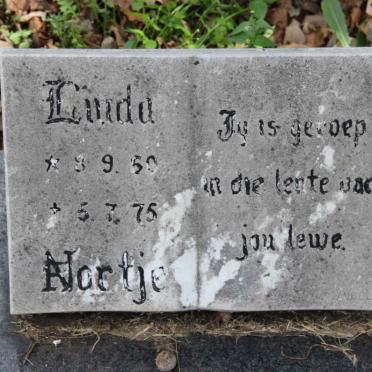 Linda
* 8 9. 60
+ 5. 7. 75
Nortje
Jy is geroep
in die lente van
jou lewe.